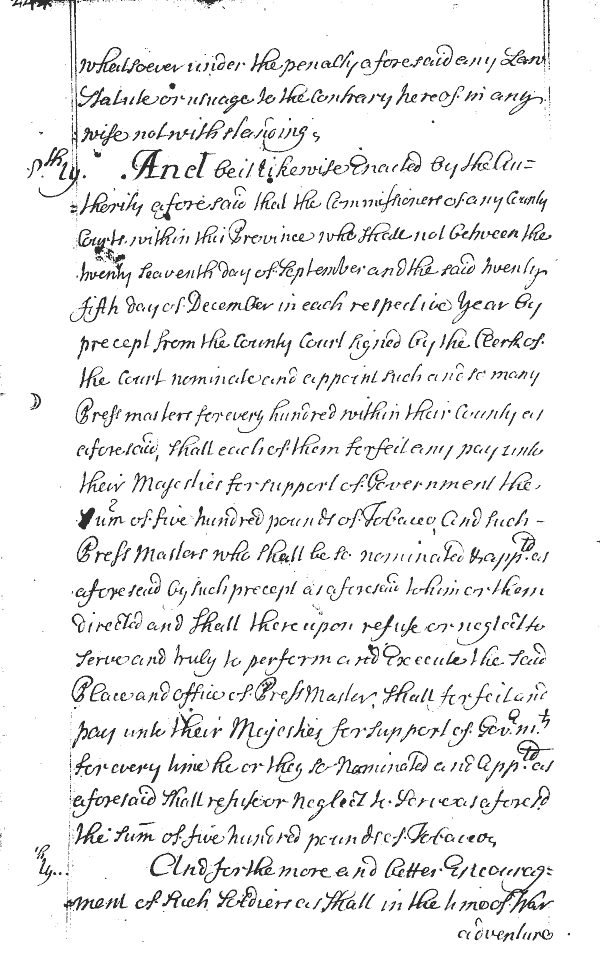 whatsoever under the penalty aforesaid any Law
Statute or usage to the Contrary hereof in any
wise notwithstanding,
And be it likewise Enacted by the Au=
=thority aforesaid that the Commissioners of any County
Courts within this Province who shall not between the
twenty seaventh day of September and the said twenty
fifth day of December in each respective Year by
precept from the County Court signed by the Clerk of
the Court nominate and appoint such and so many
Press masters for every hundred within their County as
aforesaid, shall each of them forfeit any pay unto
their Majesties for support of Government the
Sum of five hundred pounds of Tobacco, And such -
Press Masters who shall be so nominated & app.td as
aforesaid by such precept as aforesaid to him or them
directed and shall thereupon refuse or neglect to
serve and truly to perform and Execute the said
Place and office of Press Master, shall forfeit and
pay unto their Majesties for support of Governmt
for every time he or they so Nominated and App.td as
aforesaid shall refuse or neglect to Serve as aforesd
the sum of five hundred pounds of Tobacco,
And for the more and better Encourag=
=ment of such Soldiers as shall in the time of War
adventure